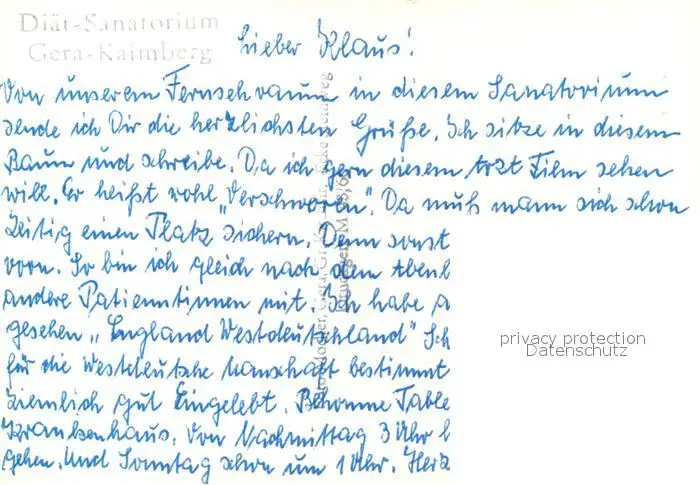 Diät-Sanatorium
Gera-Kaimberg
Lieber Klaus!
Von unserem Fernsehraum in diesem Sanatorium
sende ich Dir die herzlichsten Grüße. Ich sitze in diesem
Raum und schreibe. Da ich gern diesem Film sehen
will. Er heißt wohl „Verschworen". Da muß mann sich schon
Zeitig einen Platz sichern. Denn sonst
vorn. So bin ich gleich nach dem Abend
andere Patientinnen mit. Ich habe a
gesehen „England Westdeutschland" Ich
für die Westdeutsche bestimmt
Ziemlich gut Eingelebt. Bekomme Table
Krankenhaus. Von Nachmittag 3 Uhr b
gehen. Und Sonntag schon um 1 Uhr. Herz
privacy protection
Datenschutz